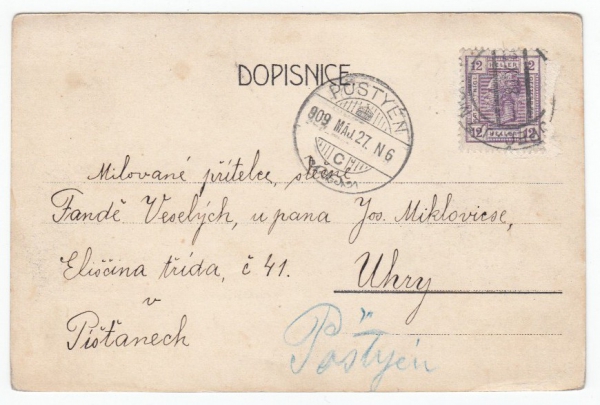 DOPISNICE
12 HELLER 12
12 12
PÖSTYÉN
909 MÁJ. 27. N6
C
Milované přítelce, slečně
Fandě Veselých, u pana Jos. Miklovicse,
Eliščina třída, č 41. Uhry
v
Píšťanech
Pöstyén